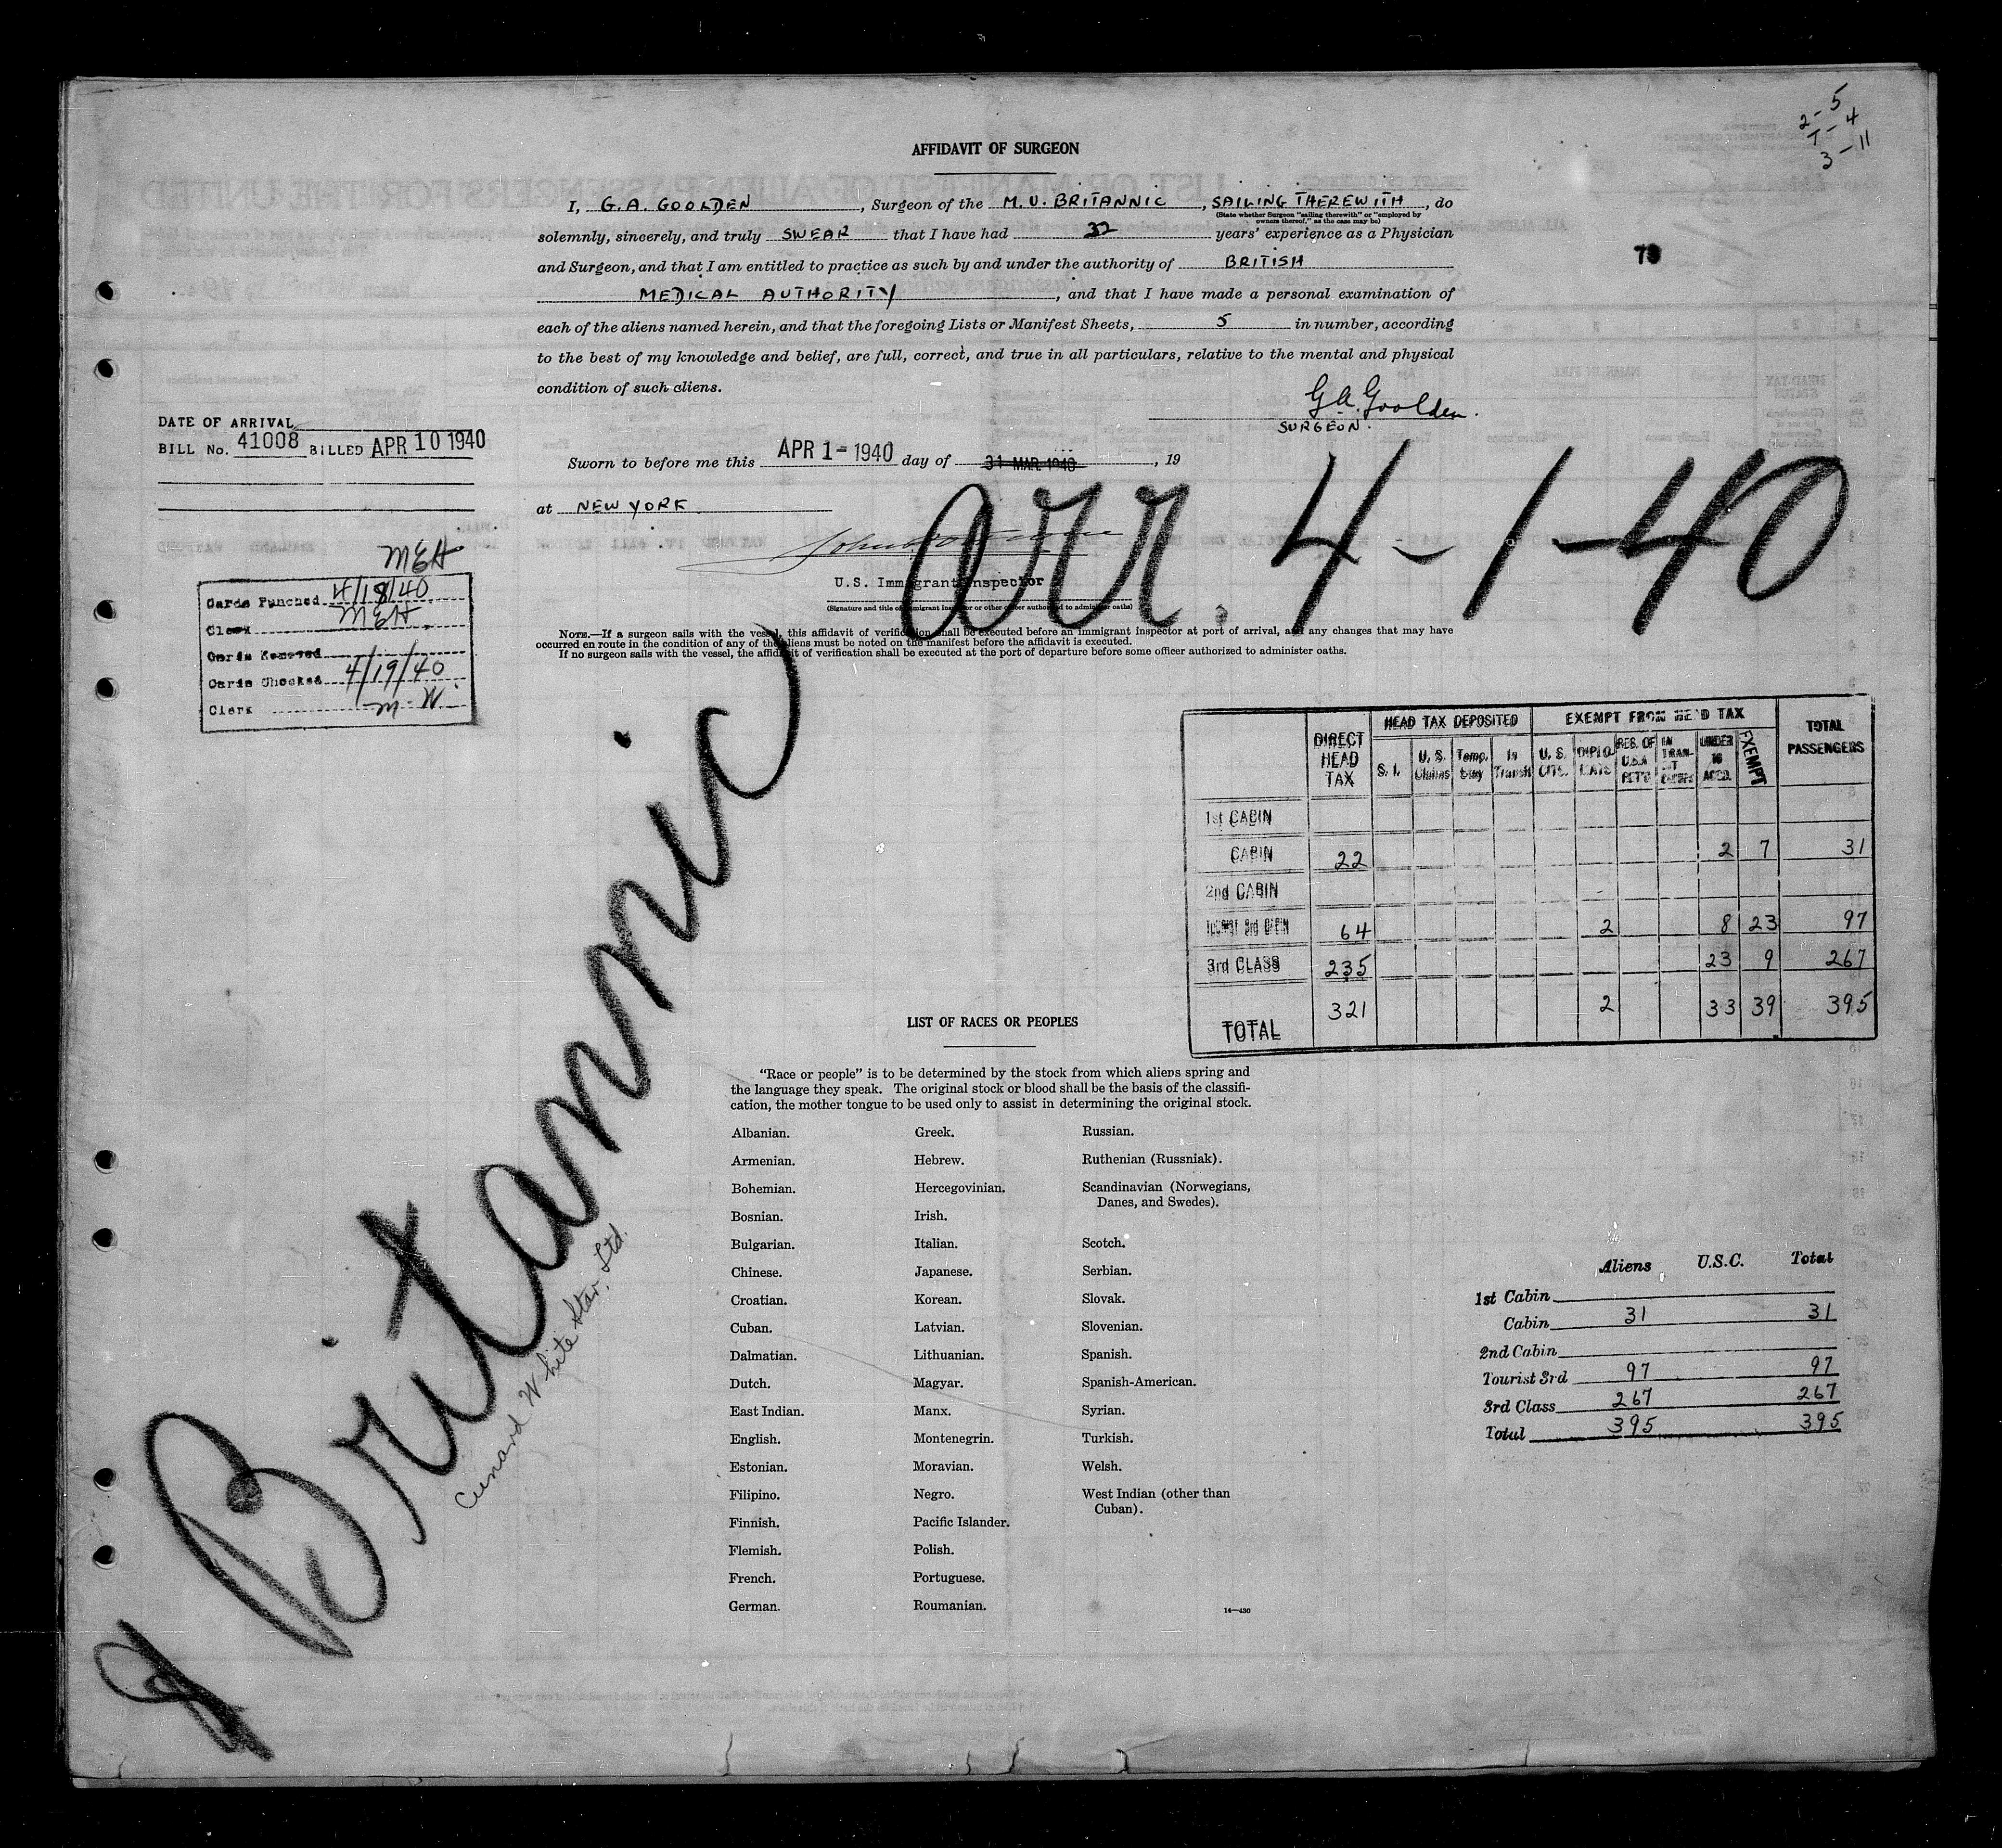 2-5
T-4
3-11
AFFIDAVIT OF SURGEON
I, G.A. GOOLDEN, Surgeon of the M.V. BRITANNIC, SAILING THEREWITH, do
(State whether Surgeon "sailing therewith" or "employed by
owners thereof," as the case may be)
solemnly, sincerely, and truly SWEAR that I have had 32 years' experience as a Physician
and Surgeon, and that I am entitled to practice as such by and under the authority of BRITISH
MEDICAL AUTHORITY, and that I have made a personal examination of
each of the aliens named herein, and that the foregoing Lists or Manifest Sheets, 5 in number, according
to the best of my knowledge and belief, are full, correct, and true in all particulars, relative to the mental and physical
condition of such aliens.
G.A. Goolden.
SURGEON.
DATE OF ARRIVAL
BILL No. 41008 BILLED APR 10 1940
Sworn to before me this APR 1-1940 day of 31 MAR 1940, 19
at NEW YORK
arr. 4-1-40
U.S. Immigrant Inspector
(Signature and title of immigrant inspector or other officer authorized to administer oaths)
NOTE.—If a surgeon sails with the vessel, this affidavit of verification shall be executed before an immigrant inspector at port of arrival, and any changes that may have
occurred en route in the condition of any of the aliens must be noted on the manifest before the affidavit is executed.
If no surgeon sails with the vessel, the affidavit of verification shall be executed at the port of departure before some officer authorized to administer oaths.
MEH
Cards Punched 4/18/40
Clerk MEH
Cards Removed
Cards Checked 4/19/40
Clerk M.W.
DIRECT HEAD TAX HEAD TAX DEPOSITED EXEMPT FROM HEAD TAX TOTAL PASSENGERS
S. I. U. S. Claims Temp. Stay In Transit U. S. CITS. DIPLOMATS RES. OF U.S.A. RET'G IN TRANSIT UNDER 16 ACCD. EXEMPT
1st CABIN
CABIN 22 2 7 31
2nd CABIN
TOURIST 3rd CABIN 64 2 8 23 97
3rd CLASS 235 23 9 267
TOTAL 321 2 33 39 395
Britannic
Cunard White Star, Ltd.
LIST OF RACES OR PEOPLES
"Race or people" is to be determined by the stock from which aliens spring and
the language they speak. The original stock or blood shall be the basis of the classifi-
cation, the mother tongue to be used only to assist in determining the original stock.
Albanian. Greek. Russian.
Armenian. Hebrew. Ruthenian (Russniak).
Bohemian. Hercegovinian. Scandinavian (Norwegians,
Danes, and Swedes).
Bosnian. Irish.
Bulgarian. Italian. Scotch.
Chinese. Japanese. Serbian.
Croatian. Korean. Slovak.
Cuban. Latvian. Slovenian.
Dalmatian. Lithuanian. Spanish.
Dutch. Magyar. Spanish-American.
East Indian. Manx. Syrian.
English. Montenegrin. Turkish.
Estonian. Moravian. Welsh.
Filipino. Negro. West Indian (other than
Cuban).
Finnish. Pacific Islander.
Flemish. Polish.
French. Portuguese.
German. Roumanian.
14—430
Aliens U.S.C. Total
1st Cabin
Cabin 31 31
2nd Cabin
Tourist 3rd 97 97
3rd Class 267 267
Total 395 395